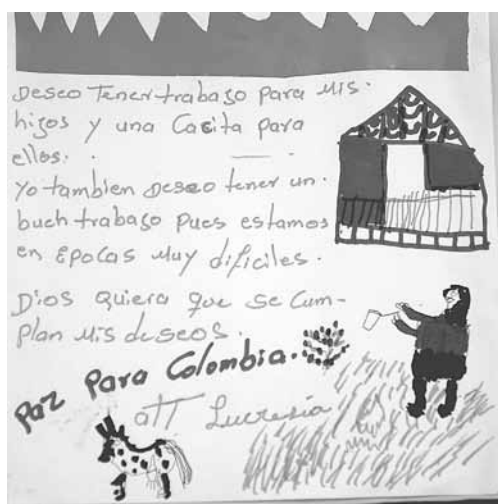 Deseo Tener trabajo para mis.
hijos y una Casita para
ellos.
Yo tambien deseo tener un.
buen trabajo pues estamos
en Epocas muy dificiles.
Dios quiera que se Cum-
plan mis deseos.
Paz Para Colombia.
att Lucresia